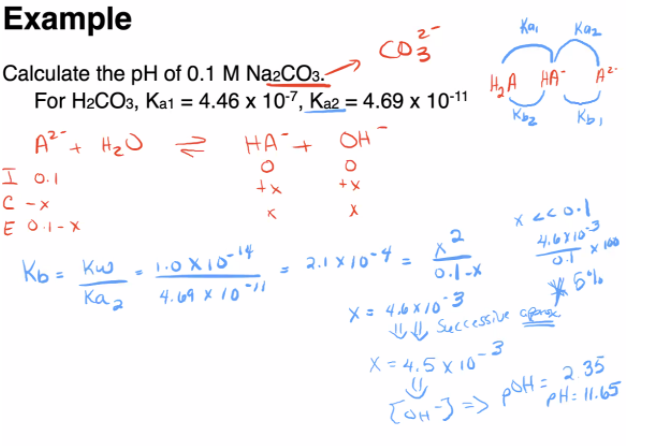 Example
Calculate the pH of 0.1 M Na2CO3. → CO3 2-
For H2CO3, Ka1 = 4.46 x 10-7, Ka2 = 4.69 x 10-11
Ka1 Ka2
H2A HA- A2-
Kb2 Kb1
A2- + H2O ⇌ HA- + OH-
I 0.1 0 0
C -x +x +x
E 0.1-x x x
Kb = Kw/Ka2 = 1.0 x 10-14 / 4.69 x 10-11 = 2.1 x 10-4 = x2 / 0.1-x
x << 0.1
4.6 x 10-3 / 0.1 x 100
5%
x = 4.6 x 10-3
⇓⇓ Successive approx
x = 4.5 x 10-3
⇓
[OH-] => pOH = 2.35
pH = 11.65